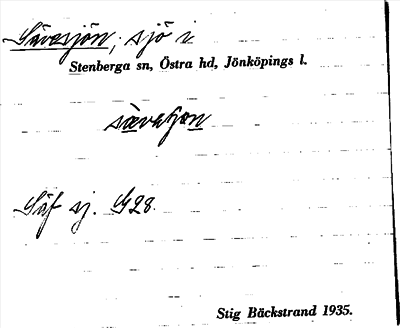 Sävsjön, sjö i
Stenberga sn, Östra hd, Jönköpings l.
Säf sj. G28.
Stig Bäckstrand 1935.